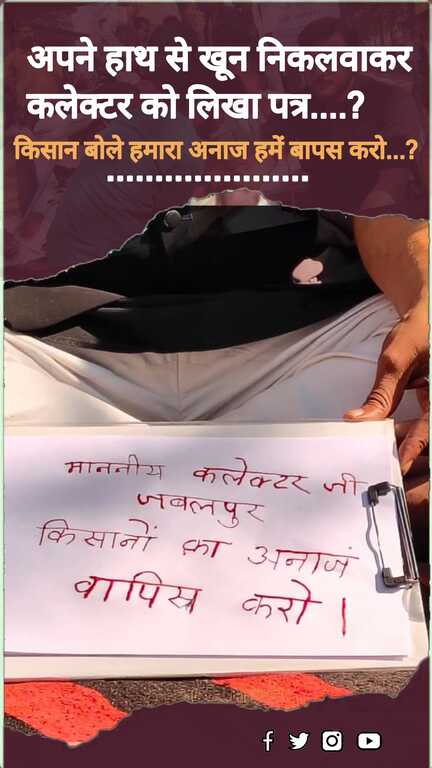 अपने हाथ से खून निकलवाकर
कलेक्टर को लिखा पत्र....?
किसान बोले हमारा अनाज हमें बापस करो...?
माननीय कलेक्टर जी
जबलपुर
किसानों का अनाज
वापिस करो।